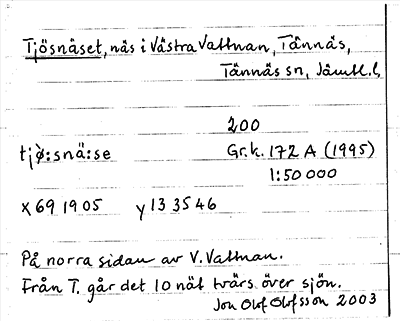 Tjösnäset, näs i Västra Vattnan, Tännäs,
Tännäs sn, Jämtl. l.
200
tjø̀:snä:se Gr.k. 172 A (1995)
1:50 000
x 69 19 05 y 13 35 46
På norra sidan av V. Vattnan.
Från T. går det 10 nät tvärs över sjön.
Jon Olof Olofsson 2003